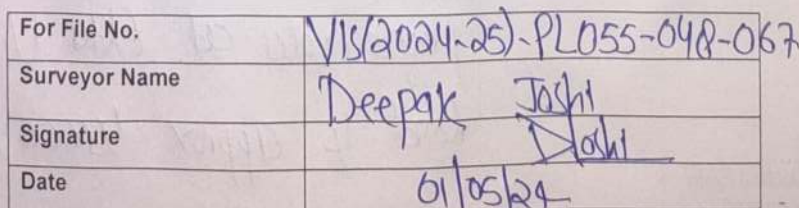 For File No. VIS(2024-25)-PL055-048-067
Surveyor Name Deepak Joshi
Signature DJoshi
Date 01/05/24